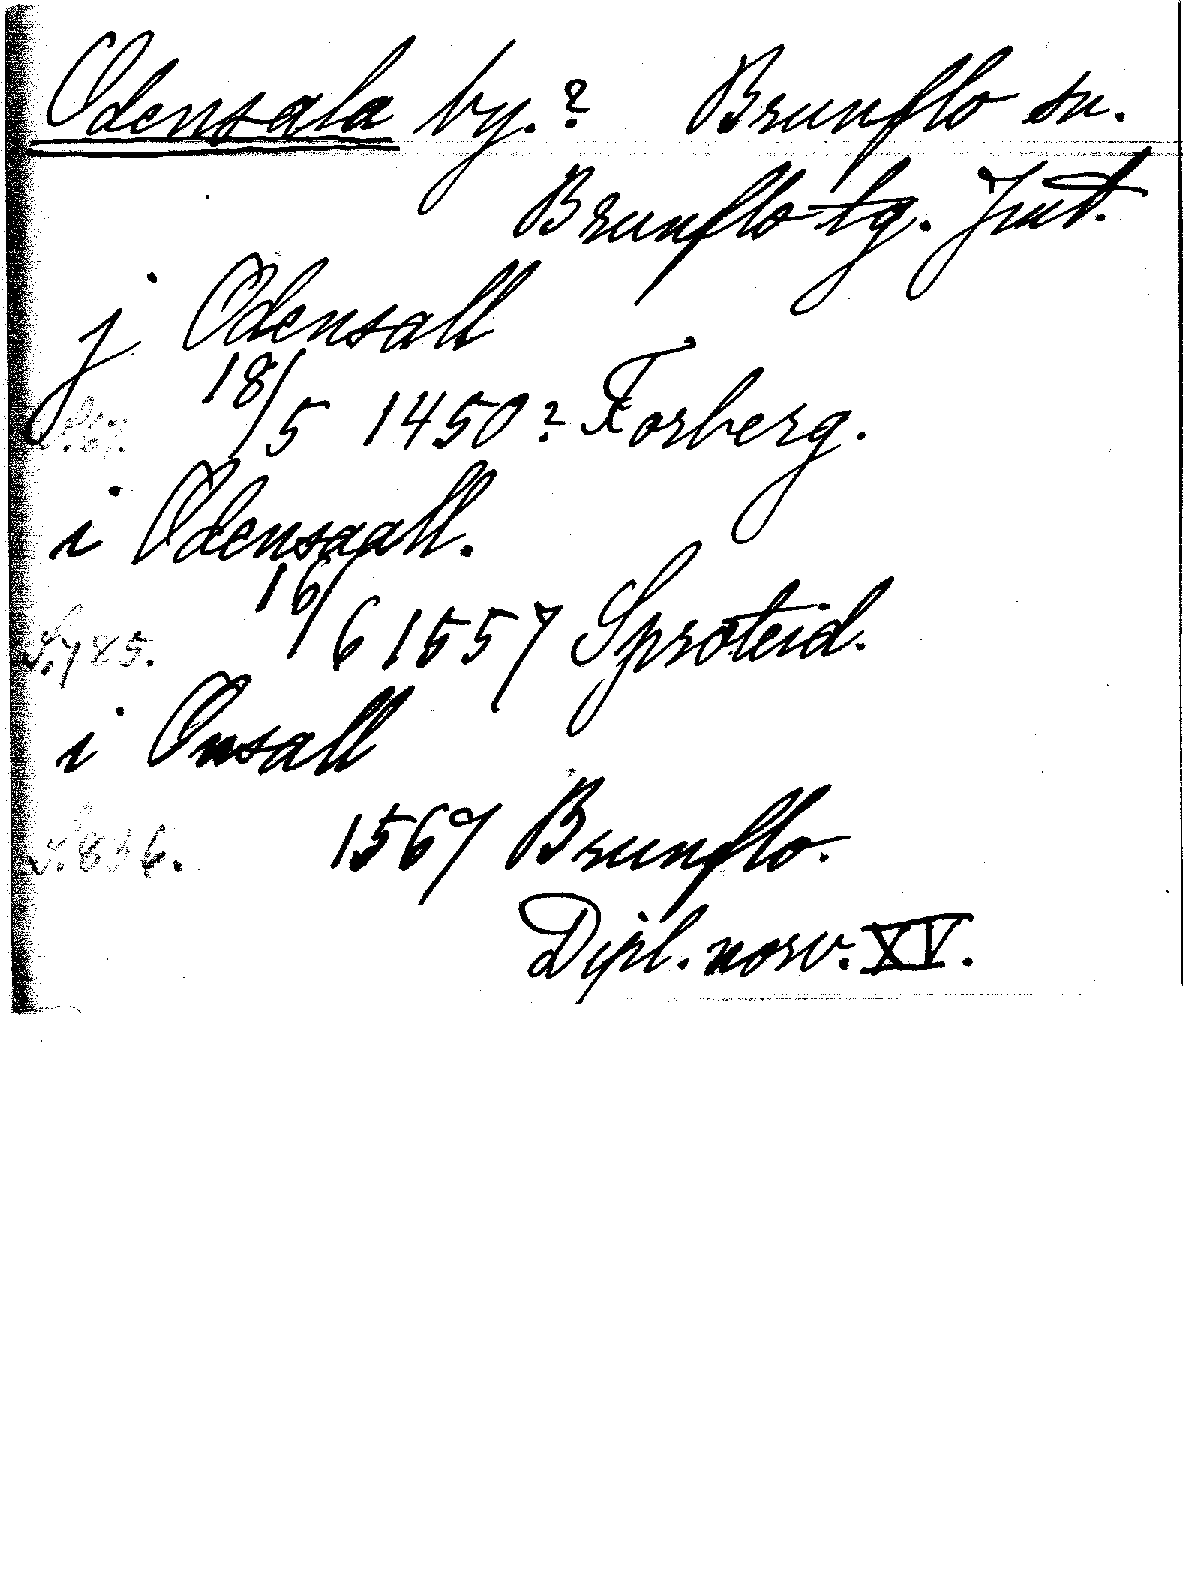 Odensala by.? Brunflo sn.
Brunflo tg. Jmt.
j Odensall
18/5 1450? Forberg.
i Odensaall.
16/6 1557 Sproteid.
S. 745.
i Onsall
1567 Brunflo.
S. 836.
Dipl. norv. XV.